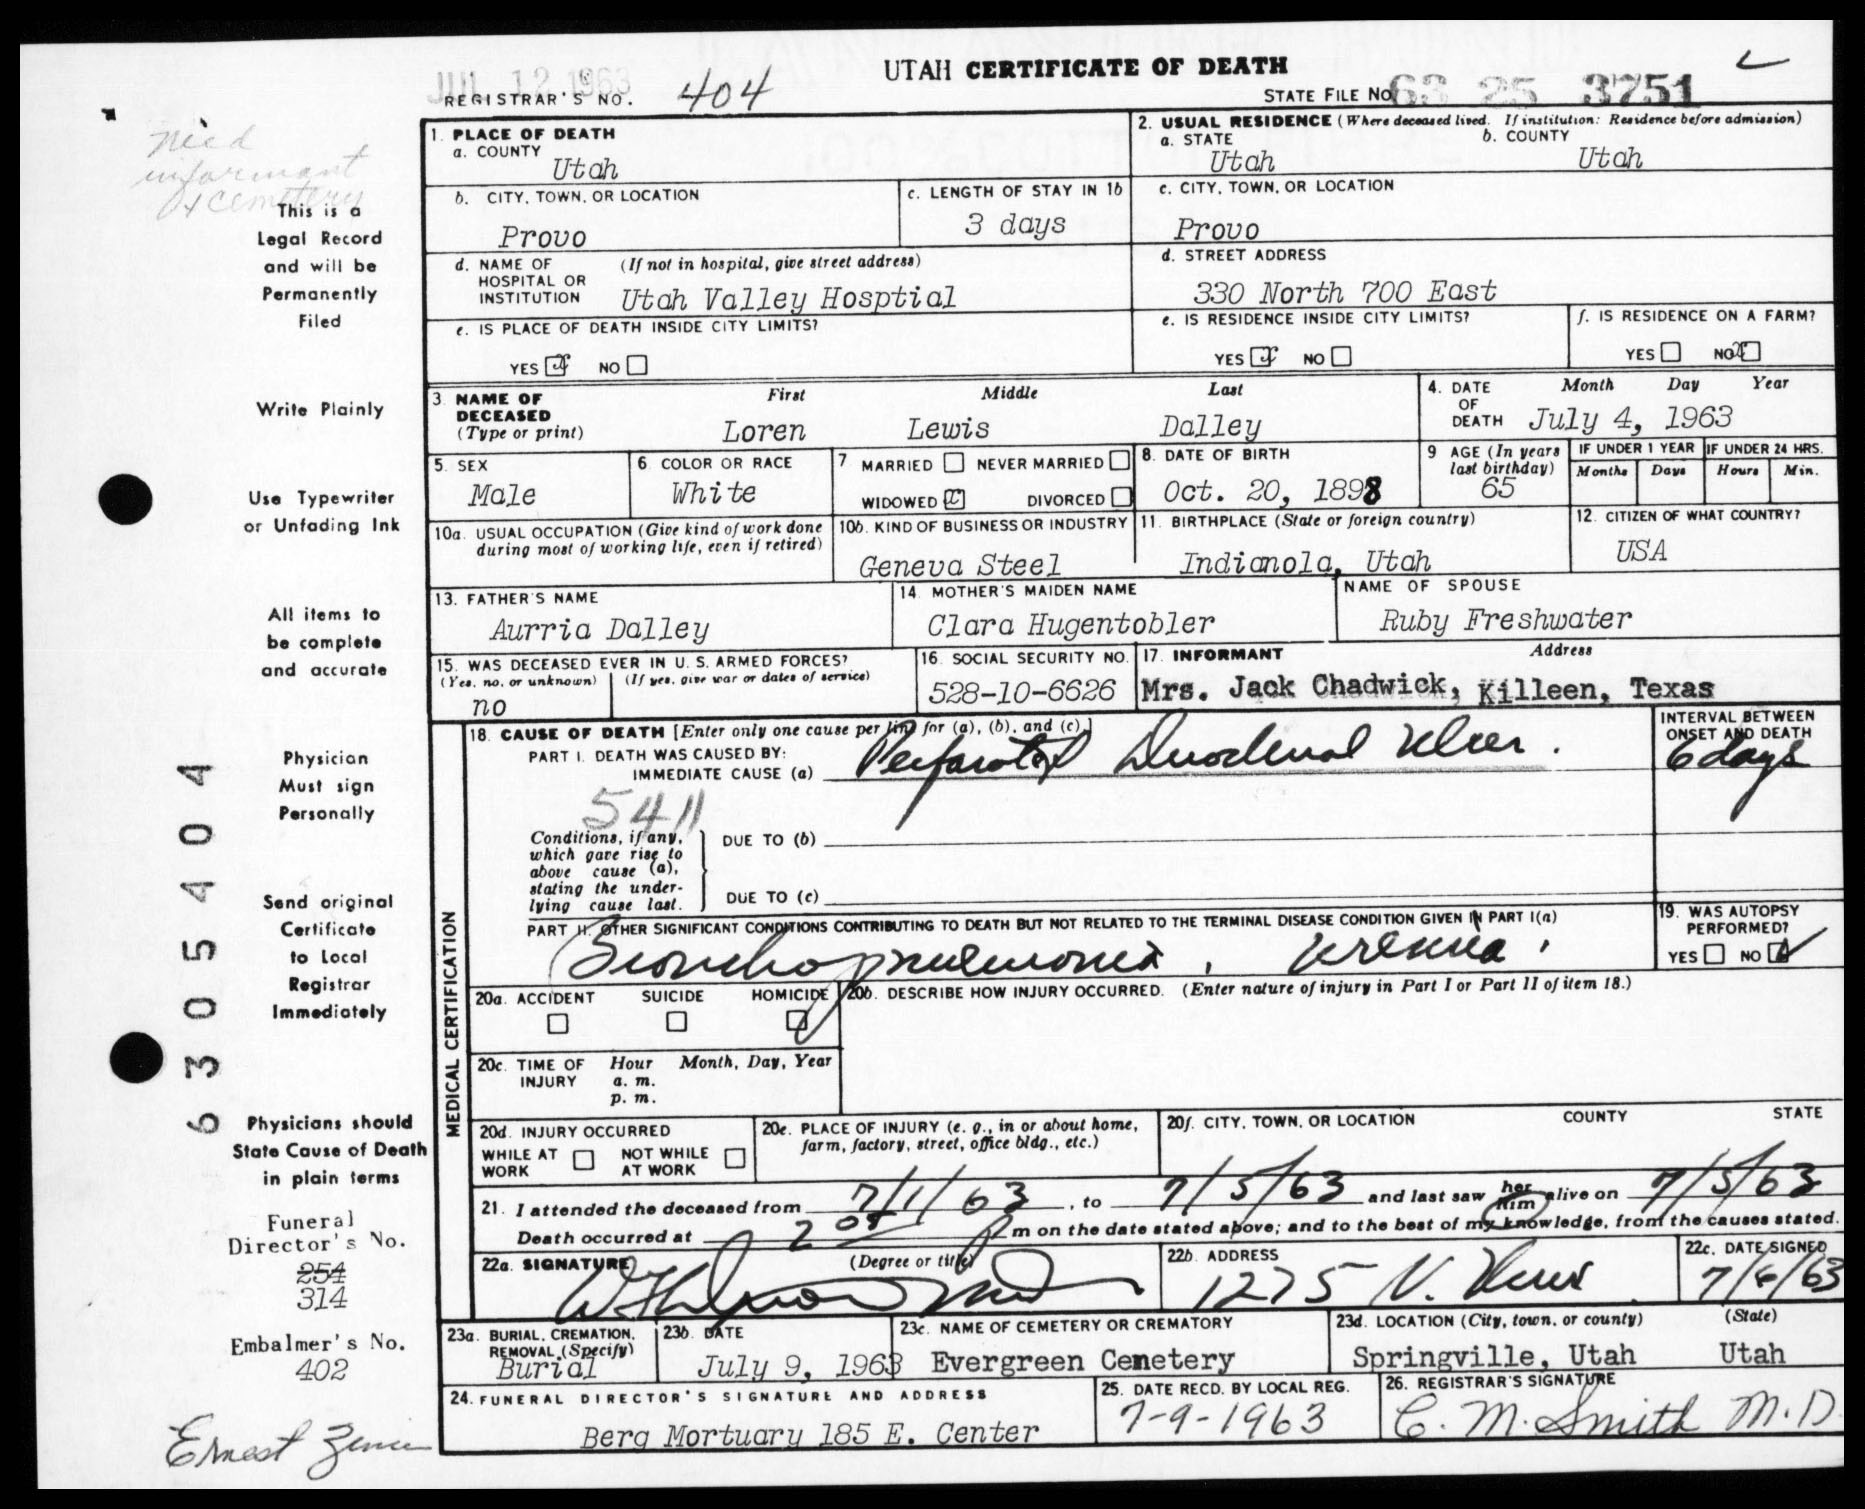 UTAH CERTIFICATE OF DEATH
JUL 12 1963
REGISTRAR'S NO. 404
STATE FILE NO. 63 25 3751
Need
informant
& cemetery
This is a
Legal Record
and will be
Permanently
Filed
Write Plainly
Use Typewriter
or Unfading Ink
All items to
be complete
and accurate
Physician
Must sign
Personally
Send original
Certificate
to Local
Registrar
Immediately
Physicians should
State Cause of Death
in plain terms
Funeral
Director's No.
254
314
Embalmer's No.
402
Ernest
6305404
1. PLACE OF DEATH
a. COUNTY
Utah
2. USUAL RESIDENCE (Where deceased lived. If institution: Residence before admission)
a. STATE b. COUNTY
Utah Utah
b. CITY, TOWN, OR LOCATION
Provo
c. LENGTH OF STAY IN 1b
3 days
c. CITY, TOWN, OR LOCATION
Provo
d. NAME OF (If not in hospital, give street address)
HOSPITAL OR
INSTITUTION Utah Valley Hosptial
d. STREET ADDRESS
330 North 700 East
e. IS PLACE OF DEATH INSIDE CITY LIMITS?
YES x NO
e. IS RESIDENCE INSIDE CITY LIMITS?
YES x NO
f. IS RESIDENCE ON A FARM?
YES NO x
3. NAME OF DECEASED
(Type or print)
First Middle Last
Loren Lewis Dalley
4. DATE OF DEATH
Month Day Year
July 4, 1963
5. SEX
Male
6. COLOR OR RACE
White
7 MARRIED NEVER MARRIED
WIDOWED x DIVORCED
8. DATE OF BIRTH
Oct. 20, 1898
9 AGE (In years
last birthday)
65
IF UNDER 1 YEAR IF UNDER 24 HRS.
Months Days Hours Min.
10a. USUAL OCCUPATION (Give kind of work done
during most of working life, even if retired)
10b. KIND OF BUSINESS OR INDUSTRY
Geneva Steel
11. BIRTHPLACE (State or foreign country)
Indianola, Utah
12. CITIZEN OF WHAT COUNTRY?
USA
13. FATHER'S NAME
Aurria Dalley
14. MOTHER'S MAIDEN NAME
Clara Hugentobler
NAME OF SPOUSE
Ruby Freshwater
15. WAS DECEASED EVER IN U. S. ARMED FORCES?
(Yes, no, or unknown) (If yes, give war or dates of service)
no
16. SOCIAL SECURITY NO.
528-10-6626
17. INFORMANT Address
Mrs. Jack Chadwick, Killeen, Texas
MEDICAL CERTIFICATION
18. CAUSE OF DEATH [Enter only one cause per line for (a), (b), and (c).]
PART I. DEATH WAS CAUSED BY:
IMMEDIATE CAUSE (a) Perforated Duodenal Ulcer.
INTERVAL BETWEEN
ONSET AND DEATH
6 days
5411
Conditions, if any,
which gave rise to
above cause (a),
stating the under-
lying cause last.
DUE TO (b)
DUE TO (c)
PART II. OTHER SIGNIFICANT CONDITIONS CONTRIBUTING TO DEATH BUT NOT RELATED TO THE TERMINAL DISEASE CONDITION GIVEN IN PART I(a)
Bronchopneumonia, Uremia.
19. WAS AUTOPSY
PERFORMED?
YES NO ✓
20a. ACCIDENT SUICIDE HOMICIDE
20b. DESCRIBE HOW INJURY OCCURRED. (Enter nature of injury in Part I or Part II of item 18.)
20c. TIME OF INJURY
Hour Month, Day, Year
a. m.
p. m.
20d. INJURY OCCURRED
WHILE AT WORK NOT WHILE AT WORK
20e. PLACE OF INJURY (e. g., in or about home,
farm, factory, street, office bldg., etc.)
20f. CITY, TOWN, OR LOCATION COUNTY STATE
21. I attended the deceased from 7/1/63, to 7/5/63 and last saw her him alive on 7/5/63
Death occurred at 2 05 P m on the date stated above; and to the best of my knowledge, from the causes stated.
22a. SIGNATURE (Degree or title)
22b. ADDRESS
1275 N.
22c. DATE SIGNED
7/6/63
23a. BURIAL, CREMATION,
REMOVAL (Specify)
Burial
23b. DATE
July 9, 1963
23c. NAME OF CEMETERY OR CREMATORY
Evergreen Cemetery
23d. LOCATION (City, town, or county) (State)
Springville, Utah Utah
24. FUNERAL DIRECTOR'S SIGNATURE AND ADDRESS
Berg Mortuary 185 E. Center
25. DATE RECD. BY LOCAL REG.
7-9-1963
26. REGISTRAR'S SIGNATURE
C. M. Smith M.D.